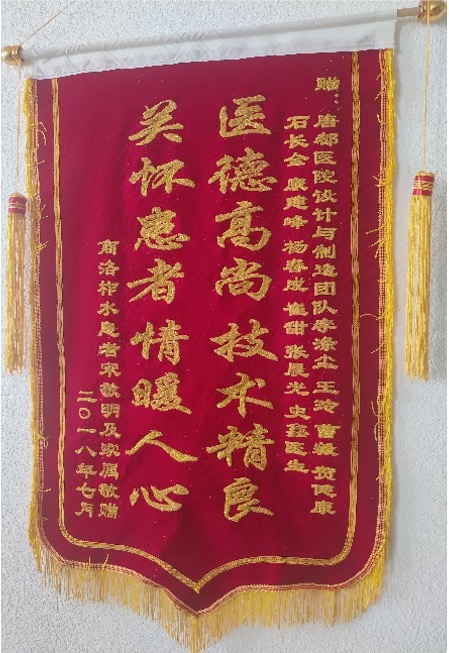 赠：唐都医院设计与制造团队李涤尘 王玲 曹毅 贺健康
石长全 康建峰 杨春成 崔甜 张晨光 史鑫医生
医德高尚技术精良
关怀患者情暖人心
商洛柞水患者宋敬明及家属敬赠
二〇一八年七月